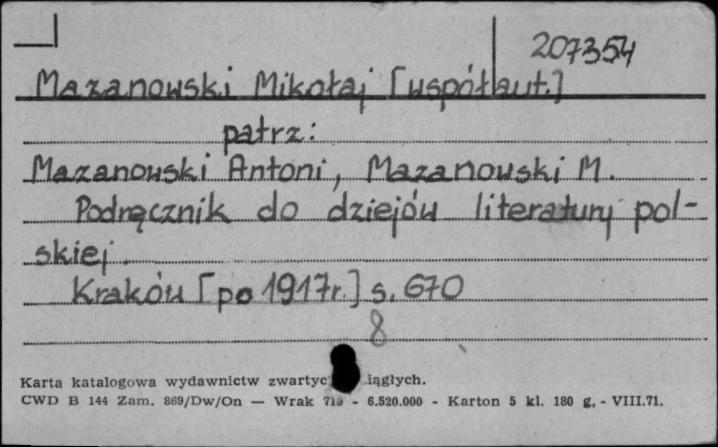 207354
Mazanowski Mikołaj [współaut.]
patrz:
Mazanowski Antoni, Mazanowski M.
Podręcznik do dziejów literatury pol-
skiej.
Kraków [po 1917r.] s. 670
8
Karta katalogowa wydawnictw zwartyc iągłych.
CWD B 144 Zam. 869/Dw/On — Wrak - 6.520.000 - Karton 5 kl. 180 g. - VIII.71.